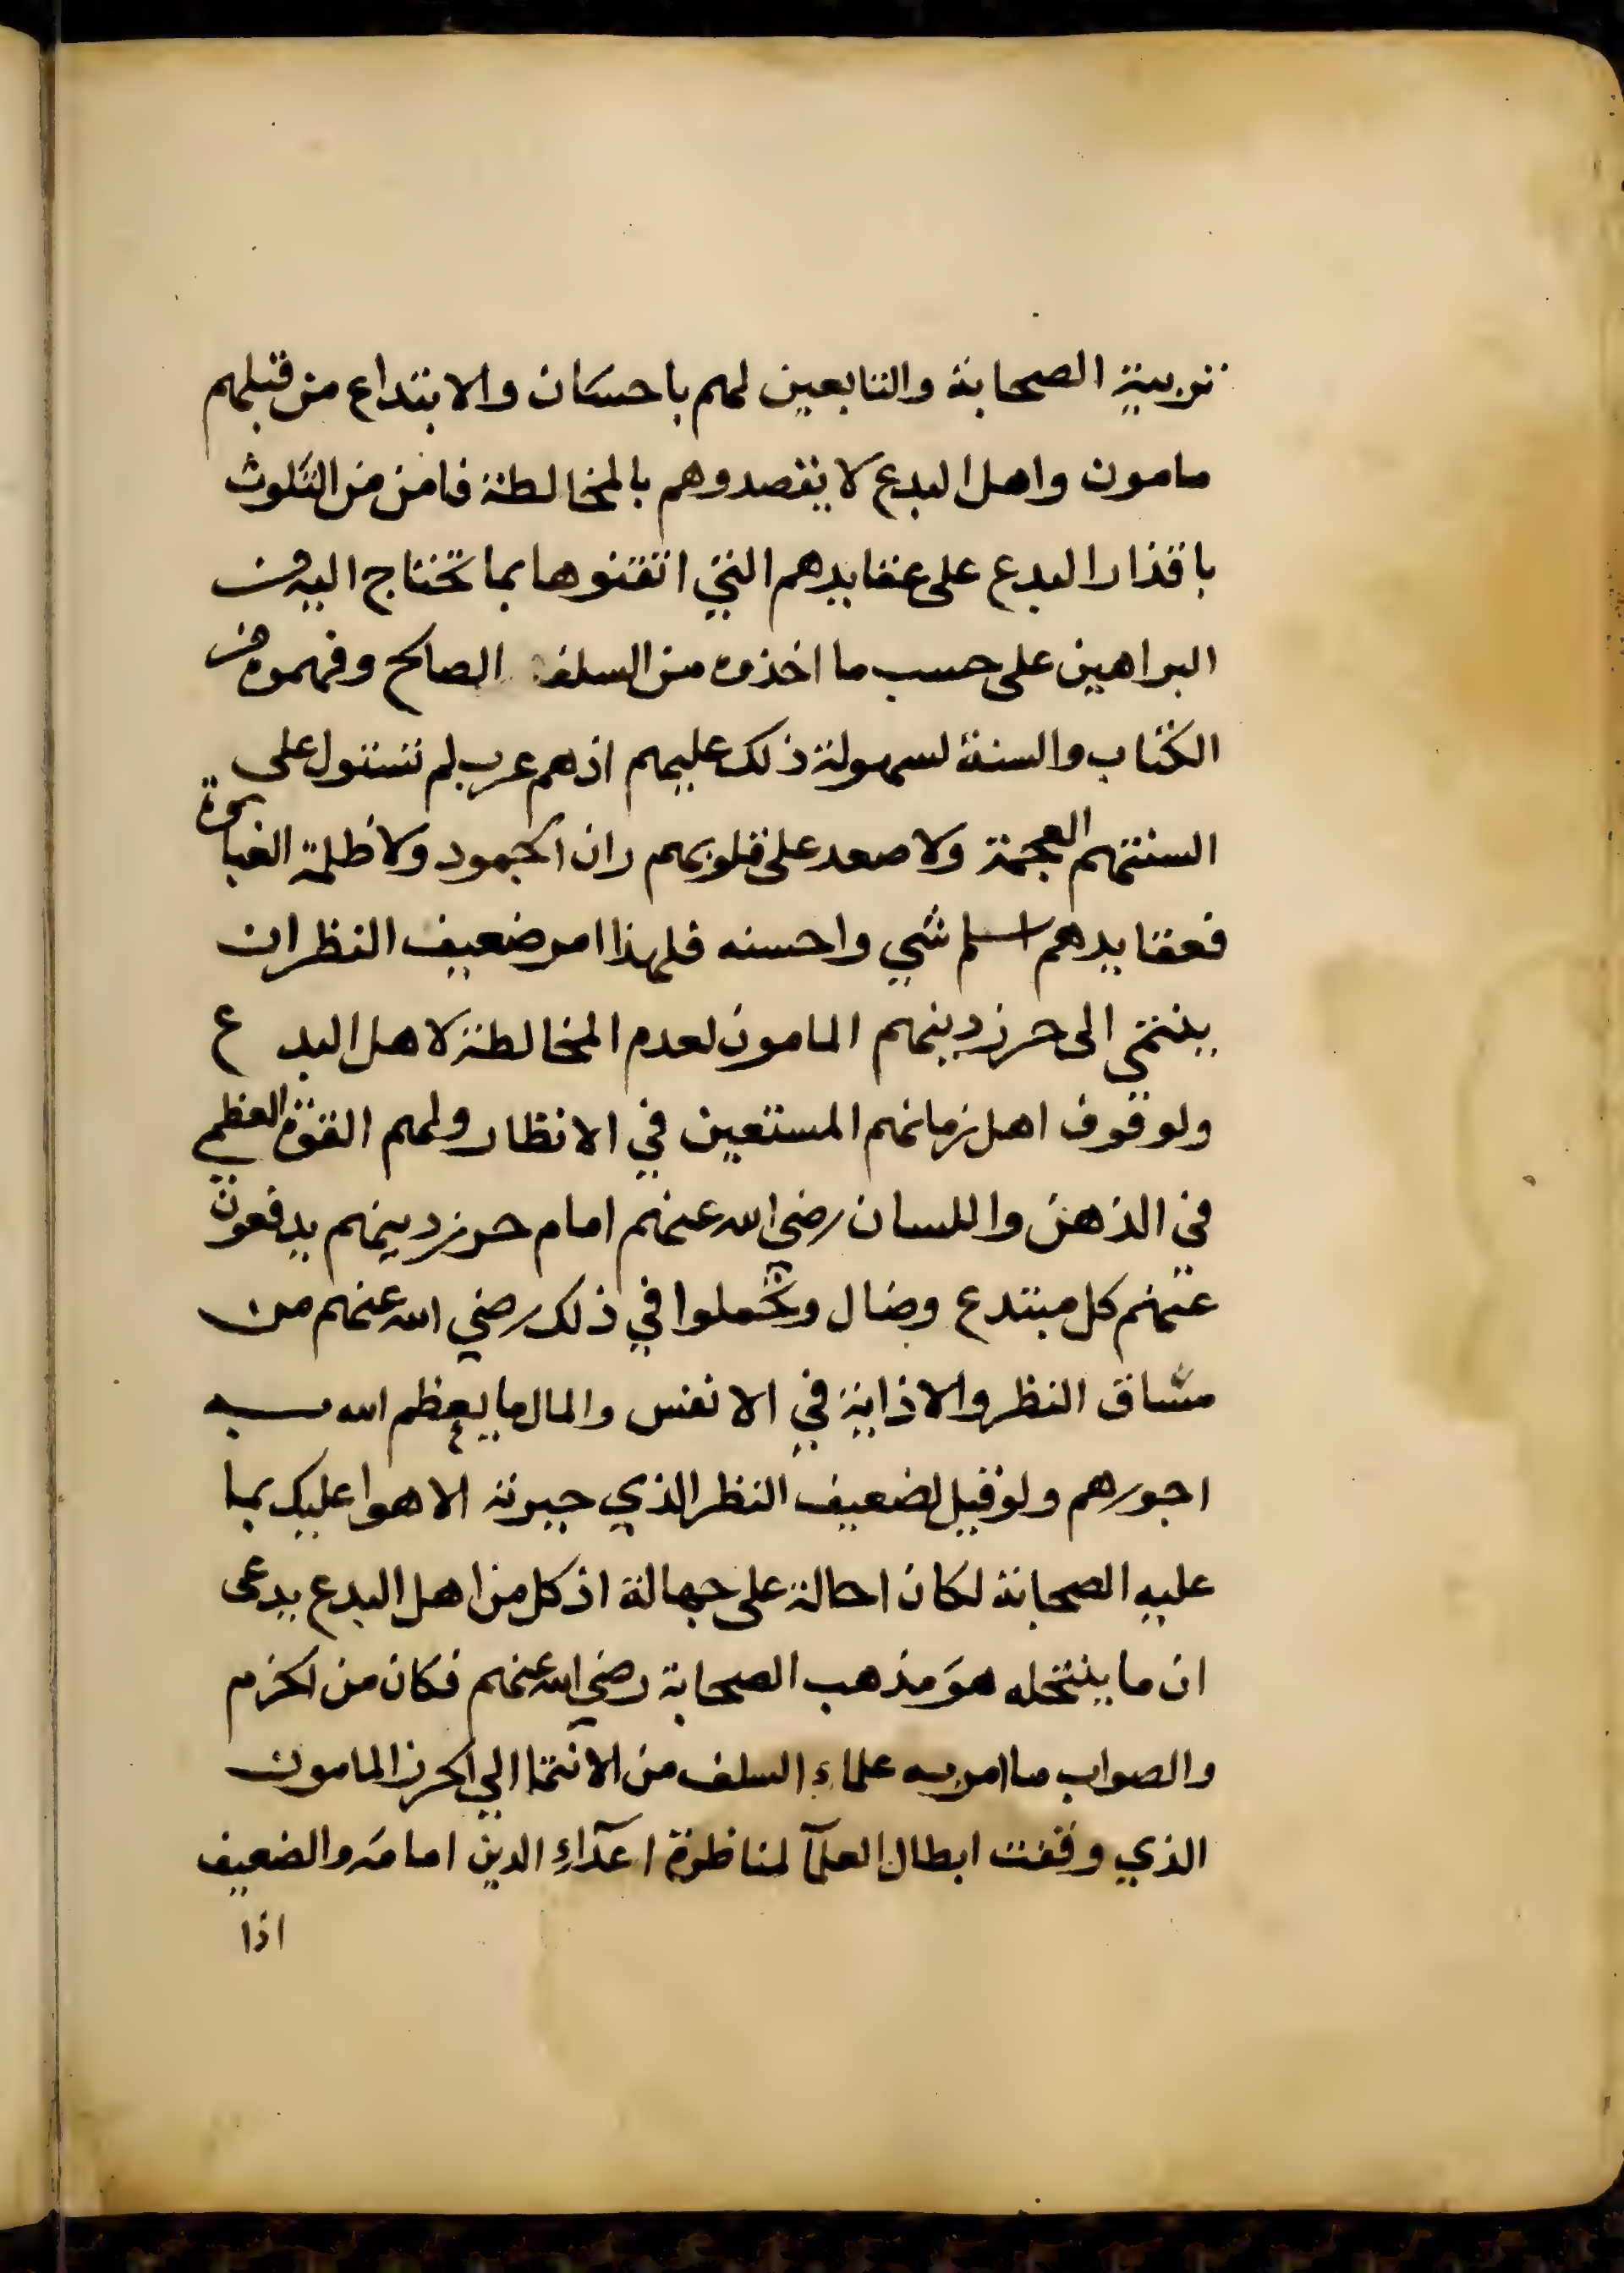 تربية الصحابة والتابعين لهم باحسان والابتداع من قبلهم
مامون واهل البدع لا يقصدوهم بالمخالطة فامن من التلوث
باقذار البدع على عقايدهم التي اتقنوها بما تحتاج اليه من
البراهين على حسب ما اخذوه من السلف الصالح وفهموه من
الكتاب والسنة لسهولة ذلك عليهم اذ هم عرب لم تستول على
السنتهم العجمة ولا صعد على قلوبهم ران الجمود ولا ظلمة الغباوة
فعقايدهم اسلم شي واحسنه فلهذا امر ضعيف النظر ان
ينتمي الى حرز دينهم المامون لعدم المخالطة لاهل البدع
ولوقوف اهل زمانهم المستعين في الانظار ولهم القوة العظمي
في الذهن واللسان رضي الله عنهم امام حرز دينهم يدفعون
عنهم كل مبتدع وضال وتحملوا في ذلك رضي الله عنهم من
مشاق النظر والاذاية في الانفس والمال ما يعظم الله به
اجورهم ولو قيل لضعيف النظر الذي حيرته الاهوا عليك بما
عليه الصحابة لكان احالة على جهالة اذ كل من اهل البدع يدعى
ان ما ينتحله هو مذهب الصحابة رضي الله عنهم فكان من الحزم
والصواب ما امر به علماء السلف من الانتما الي الحرز المامون
الذي وقفت ابطال العلمآ لمناظرة اعدآء الدين امامه والضعيف
اذا